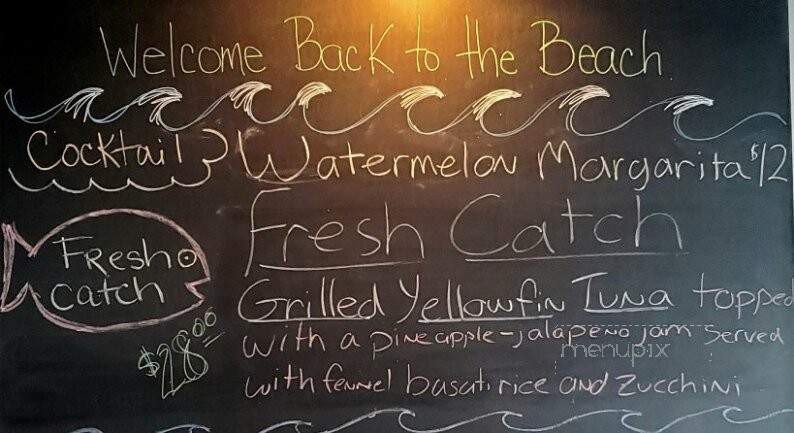 Welcome Back to the Beach
Cocktail Watermelon Margarita $12
Fresh Catch
Fresh
Catch
Grilled Yellowfin Tuna topped
with a pineapple-jalapeño jam served
menupix
$28.00
with fennel basati rice and zucchini